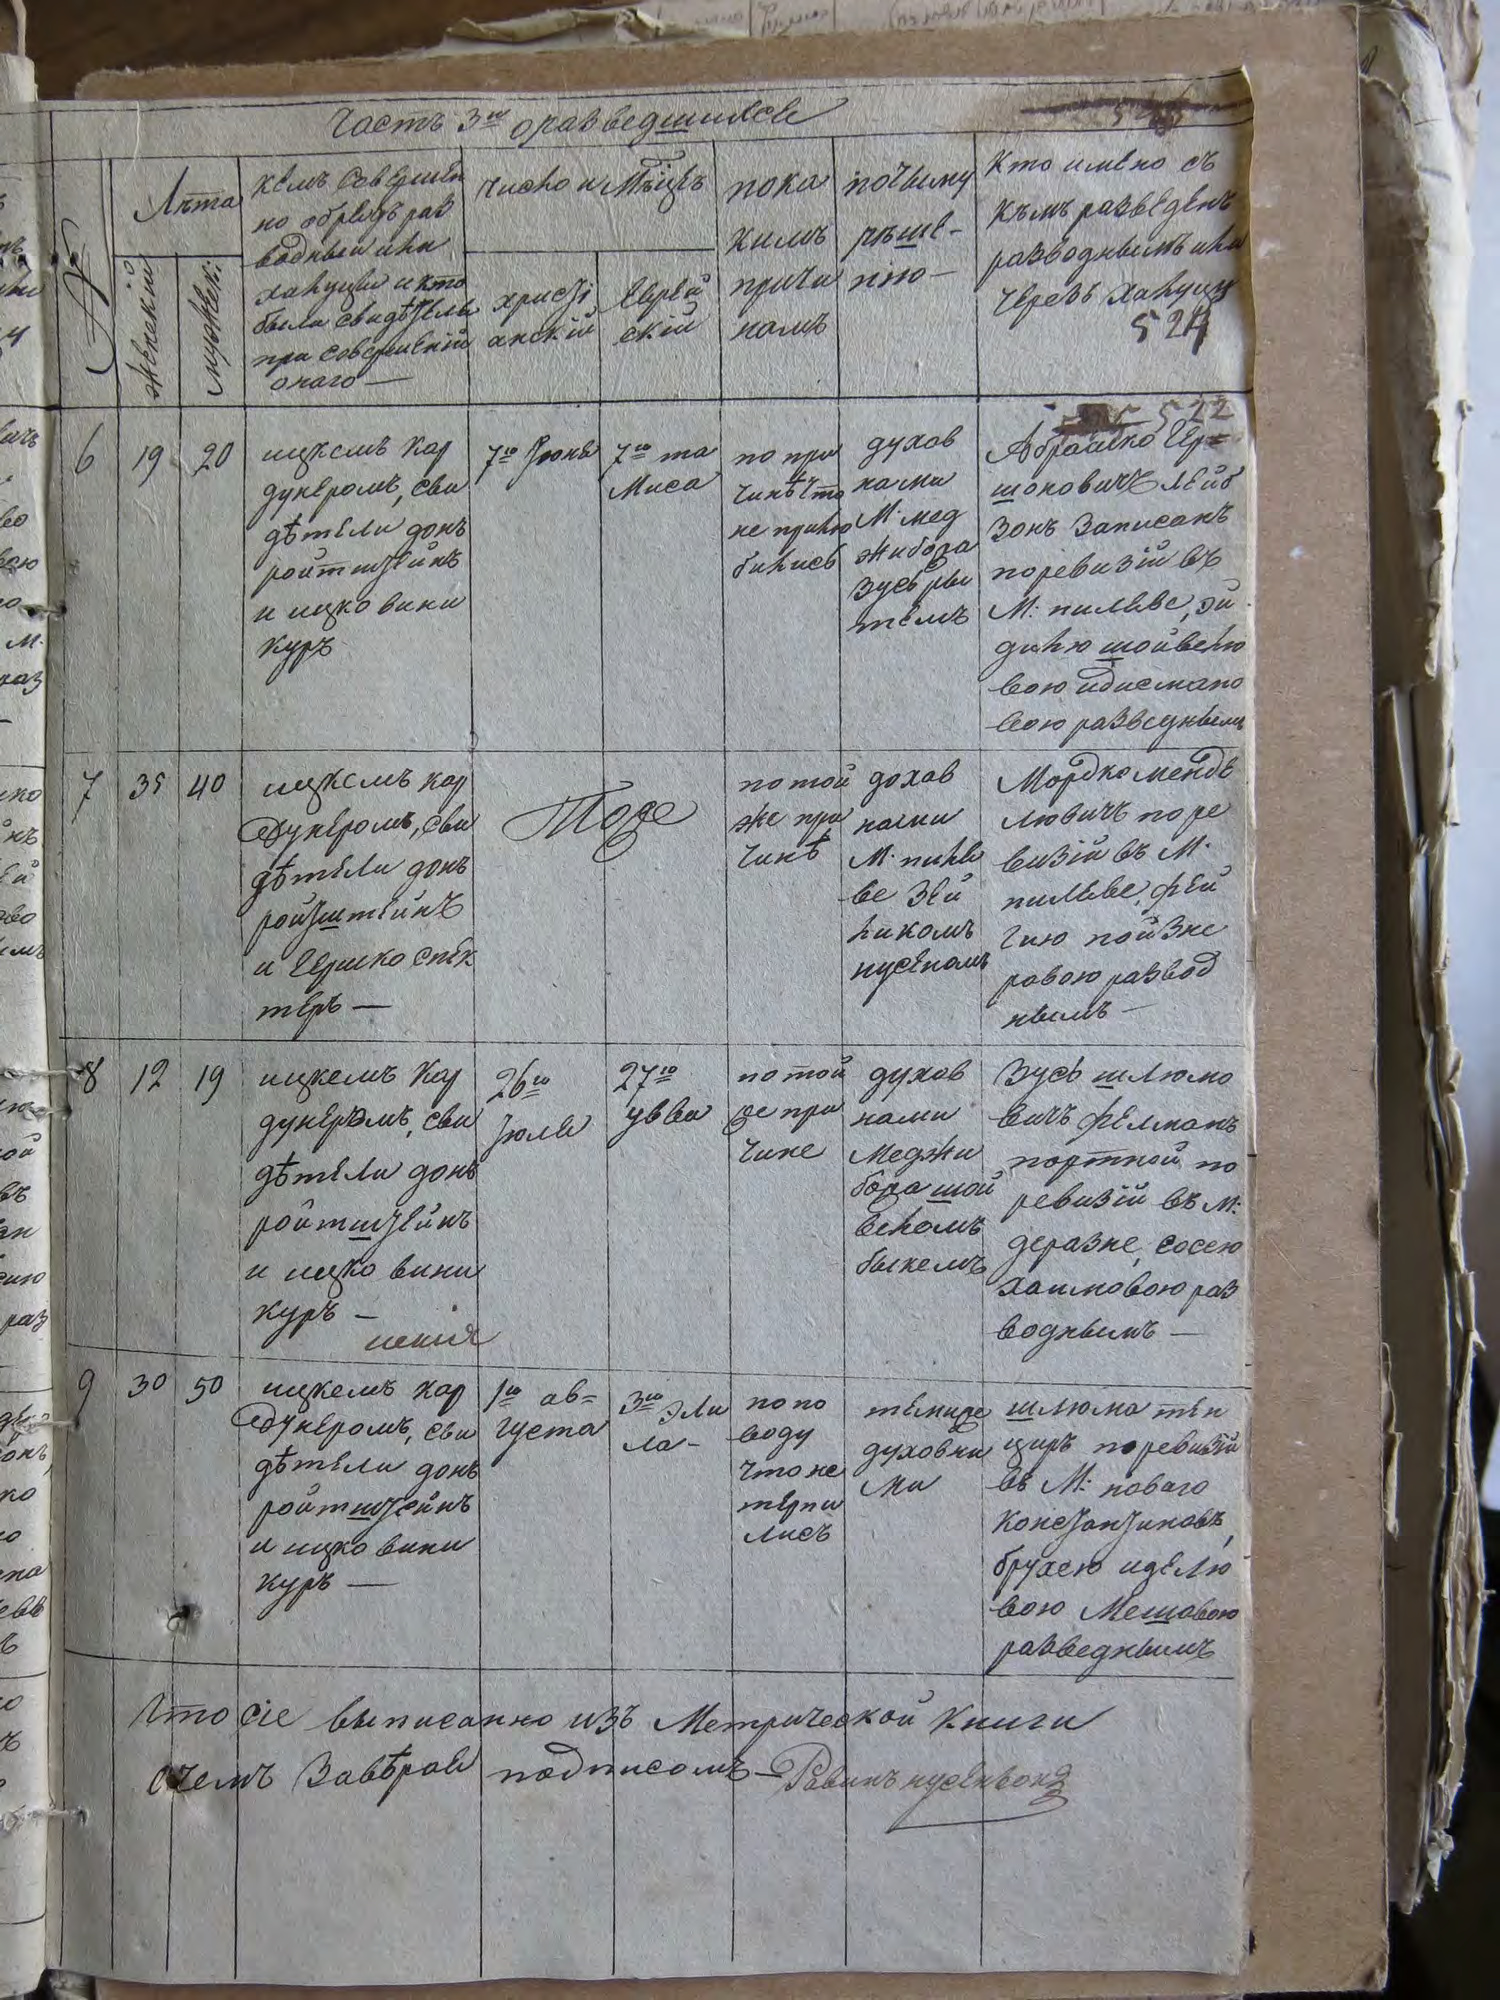 Часть 3ю оразведшихся
№
Лѣта
женский
мужеск:
кемъ Совершен
но обрядъ раз
водный или
халуцы и кто
были свидѣтели
при совершеній
онаго —
число и Мѣцъ
христі
анскій
Еврей
скій
пока
кимъ
причи
намъ
почьему
рѣше-
нію —
Кто имено съ
къмъ разведенъ
разводнымъ или
черезъ халуцу
524
522
6
19
20
ицкемъ Кар
дунеромъ, сви
дѣтели донъ
ройтштейнъ
и ицко вини
куръ
7го Іюня
7го та
Миса
по при
чинѣ что
не прилю
бились
духов
нами
М. мед
жибора
Зусь ры
темъ
Абрашко Гер=
шоковичъ лейб
зонъ Записанъ
поревизій въ
М: пилеве, эй
дилю шойвелю
вою идисмано
вою разведнымъ
7
35
40
ицкемъ кар
дунеромъ, сви
дѣтели донъ
ройтштейнъ
и Гершко спек
теръ —
Тоже
по той
же при
чинѣ
дохов
нами
М. пиле
ве Зей
ликомъ
нусеномъ
Мордко мендъ
люvичъ по ре
визій въ М.
пилеве, фей
гию пойзне
ровою развод
нымъ —
8
12
19
ицкемъ Кар
дунеромъ, сви
дѣтели донъ
ройтштейнъ
и ицко вини
куръ —
26го
Іюля
27го
увва
по той
же при
чине
духов
нами
Меджи
бора шой
веломъ
быкемъ
Зусь шлюмо
вичъ фелманъ
портной по
ревизій въ м:
деразне, сосею
хаимовою раз
воднымъ —
9
30
50
ицкемъ кар
дунеромъ, сви
дѣтели донъ
ройтштейнъ
и ицко вини
куръ —
1го ав=
густа
3го эли
ла-
по по
воду
что не
терпи
лисъ
темиже
духовны
ми
шлюма тен
циръ поревизій
въ М: новаго
Константиновъ,
брухею иделю
вою Мешовою
разведнымъ
Что сіе выписанно изъ Метрической Книги
очемъ Завѣраю подписомъ —
Равинъ нусензонъ